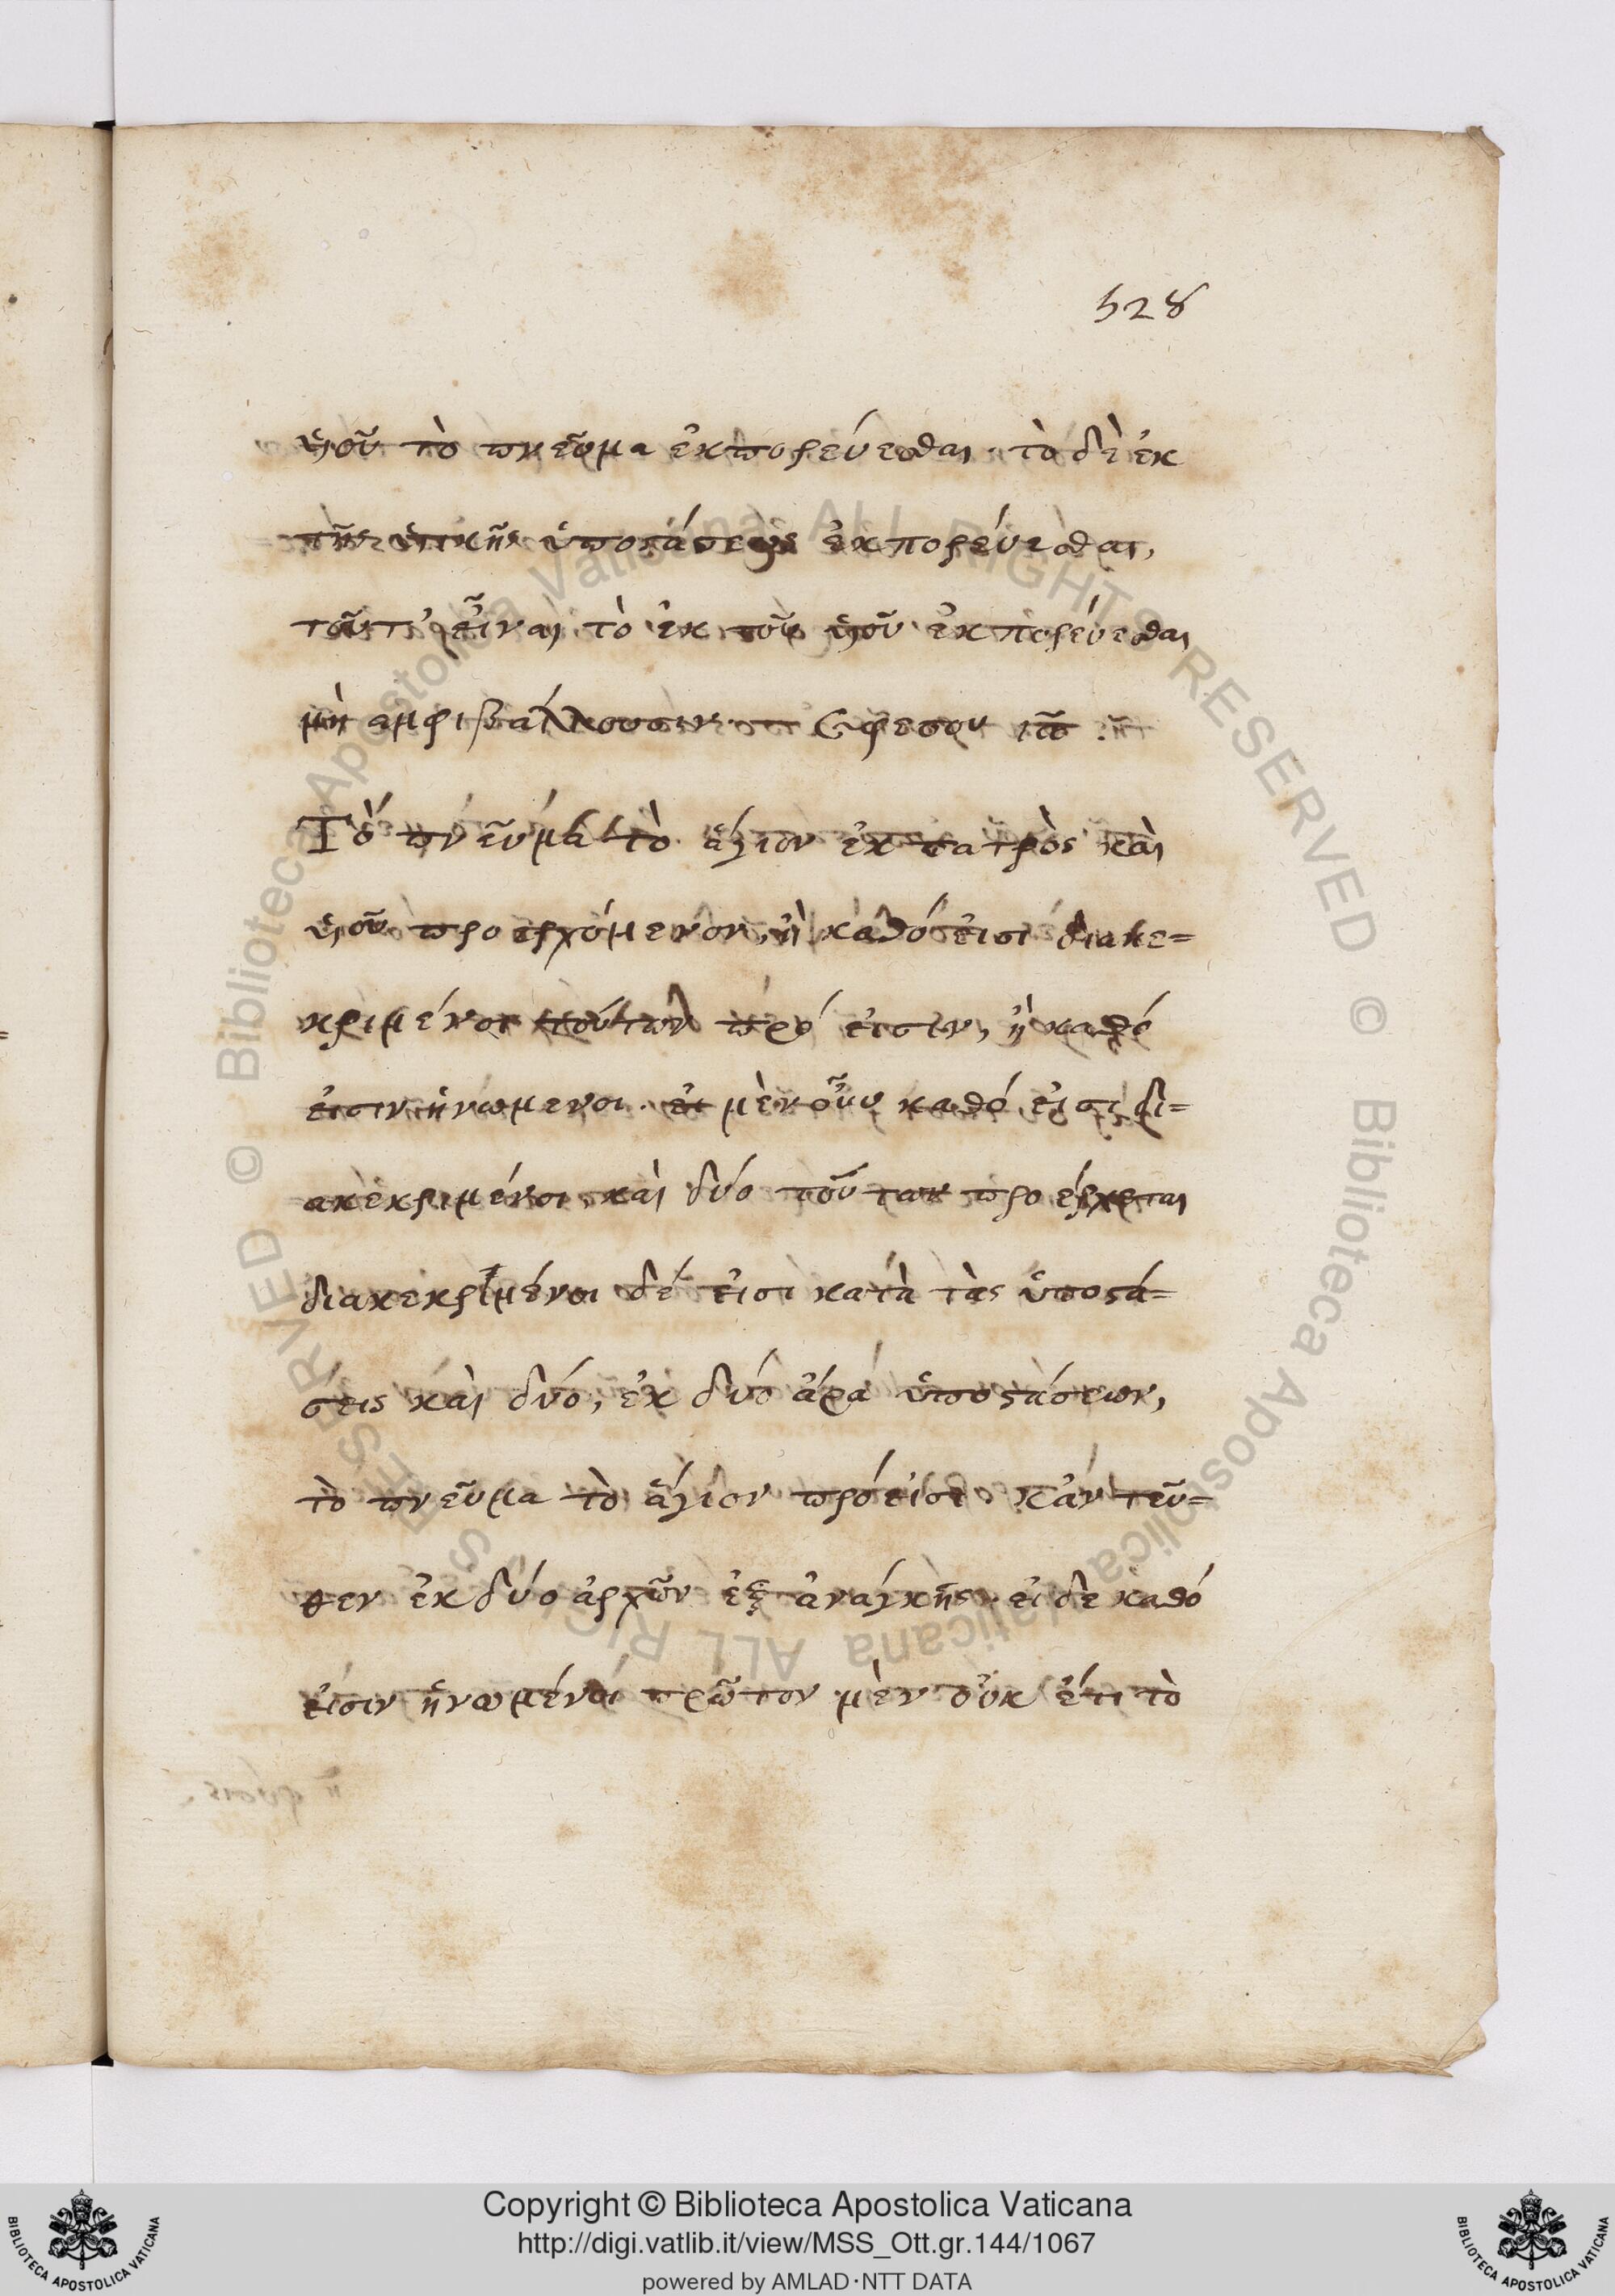 528
ὑιοῦ τὸ πνεῦμα ἐκπορεύεσθαι· τὸ δὲ ἐκ
τῆς ὑικῆς ὑποστάσεως ἐκπορεύεσθαι,
τοῦτ' εἶναι τὸ ἐκ τοῦ ὑιοῦ ἐκπορεύεσθαι
μὴ αμφιβάλλουσιν. Εφεσου
Τὸ πνεῦμα τὸ ἅγιον ἐκ πατρὸς καὶ
ὑιοῦ προερχόμενον, ἢ καθό εἰσι διακε=
κριμένοι τούτων πρόεισιν, ἢ καθό
εἰσιν ἡνωμενοι. εἰ μὲν οὖν καθό εἰσι δι=
ακεκριμένοι καὶ δύο τούτων προέρχεται
διακεκριμένοι δέ εἰσι κατὰ τὰς ὑποστά=
σεις καὶ δύο, ἐκ δύο ἄρα ὑποστάσεων,
τὸ πνεῦμα τὸ ἅγιον πρόεισι. κἀντεῦ=
θεν ἐκ δύο ἀρχῶν ἐξ ἀνάγκης. εἰ δε καθό
εἰσιν ἡνωμένοι πρῶτον μὲν οὐκ έτι τὸ
Copyright © Biblioteca Apostolica Vaticana
http://digi.vatlib.it/view/MSS_Ott.gr.144/1067
powered by AMLAD·NTT DATA
BIBLIOTECA APOSTOLICA VATICANA
BIBLIOTECA APOSTOLICA VATICANA